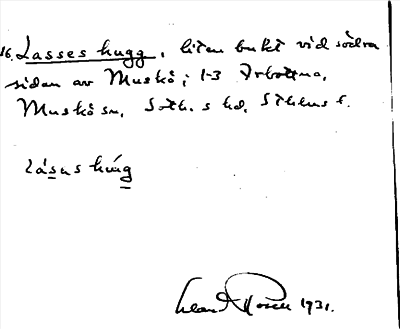 16. Lasses hugg, liten bukt vid södra
sidan av Muskö; 1-3 Arbottna,
Muskö sn, Soth. s hd, Sthlms l.
lásns húg
1931.